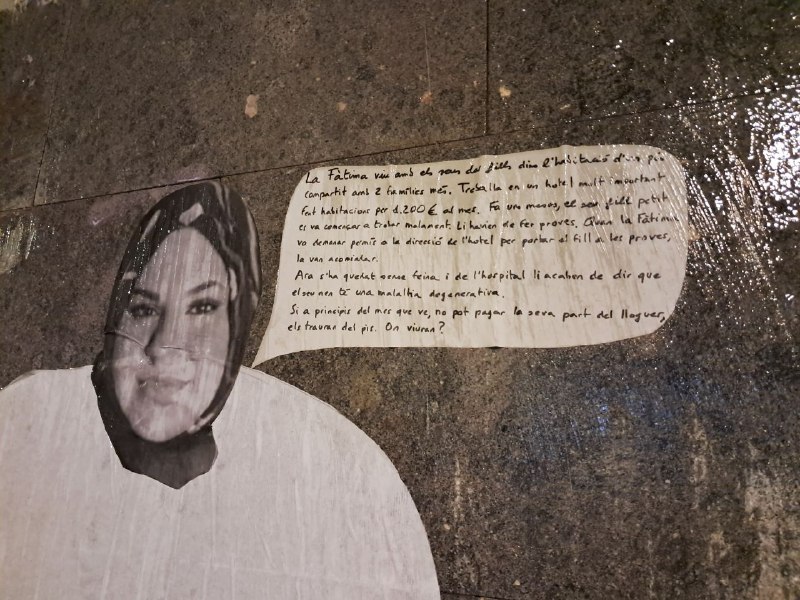 La Fàtima viu amb els seus dos fills dins l'habitació d'un pis
compartit amb 2 famílies més. Treballa en un hotel molt important
fent habitacions per 1.200 € al mes. Fa uns mesos, el seu fill petit
es va començar a trobar malament. Li havien de fer proves. Quan la Fàtima
va demanar permís a la direcció de l'hotel per portar al fill a les proves,
la van acomiadar.
Ara s'ha quedat sense feina i de l'hospital li acaben de dir que
el seu nen té una malaltia degenerativa.
Si a principis del mes que ve, no pot pagar la seva part del lloguer,
els trauran del pis. On viuran?